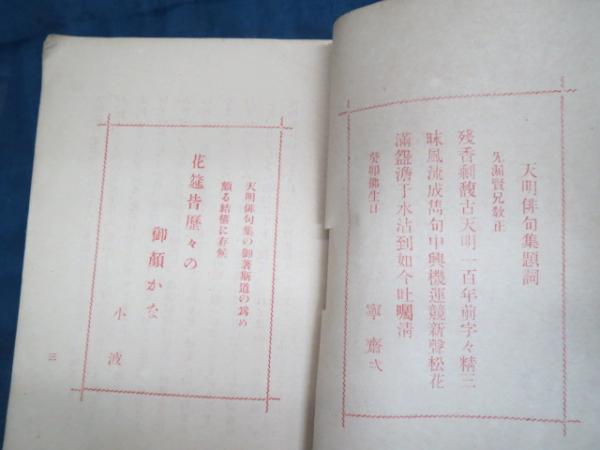 天明俳句集題詞
先漏賢兄敎正
残香剩馥古天明一百年前字々精三
昧風流成雋句中興機運競新聲松花
滿盌澹于水沾到如今吐屬淸
癸卯佛生日
寧齋弌
天明俳句集の御著斯道の爲め
頗る結構に存候
花筵皆歷々の
御顏かな
小波
三